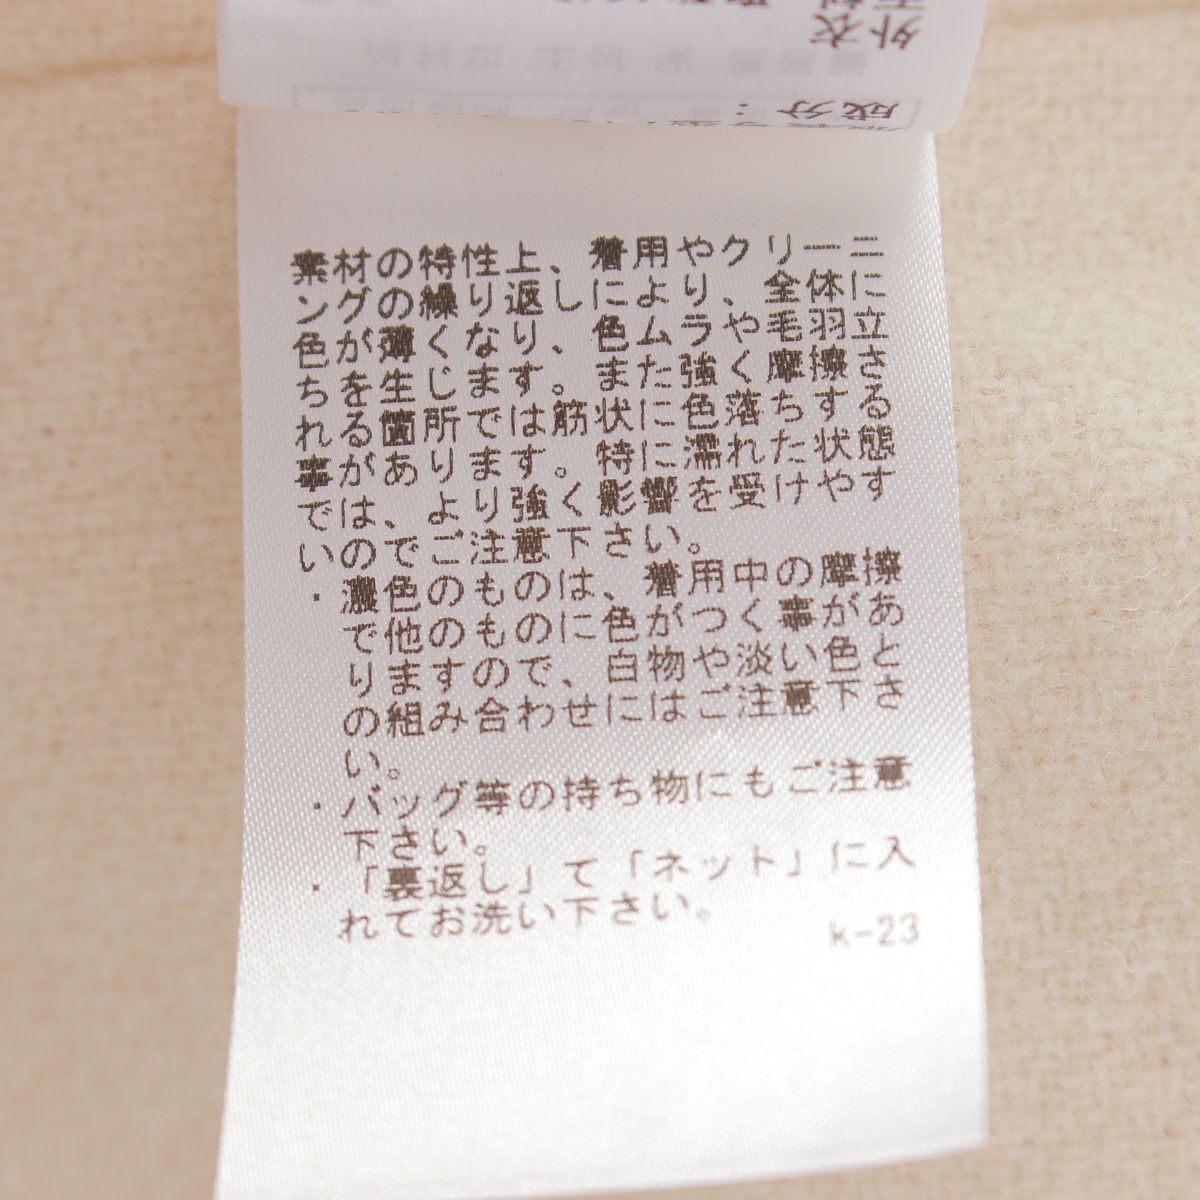 外衣
成分：
素材の特性上、着用やクリーニ
ングの繰り返しにより、全体に
色が薄くなり、色ムラや毛羽立
ちを生じます。また強く摩擦さ
れる箇所では筋状に色落ちする
事があります。特に濡れた状態
では、より強く影響を受けやす
いのでご注意下さい。
・濃色のものは、着用中の摩擦
で他のものに色がつく事があ
りますので、白物や淡い色と
の組み合わせにはご注意下さ
い。
・バッグ等の持ち物にもご注意
下さい。
・「裏返し」て「ネット」に入
れてお洗い下さい。
k-23